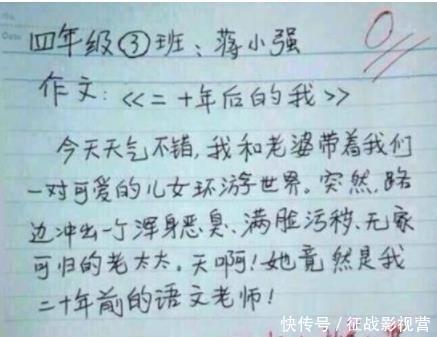 四年级③班：蒋小强
0
作文：《二十年后的我》
今天天气不错，我和老婆带着我们
一对可爱的儿女环游世界。突然，路
边冲出一个浑身恶臭、满脸污秽、无家
可归的老太太。天啊！她竟然是我
二十年前的语文老师！
快传号/征战影视营